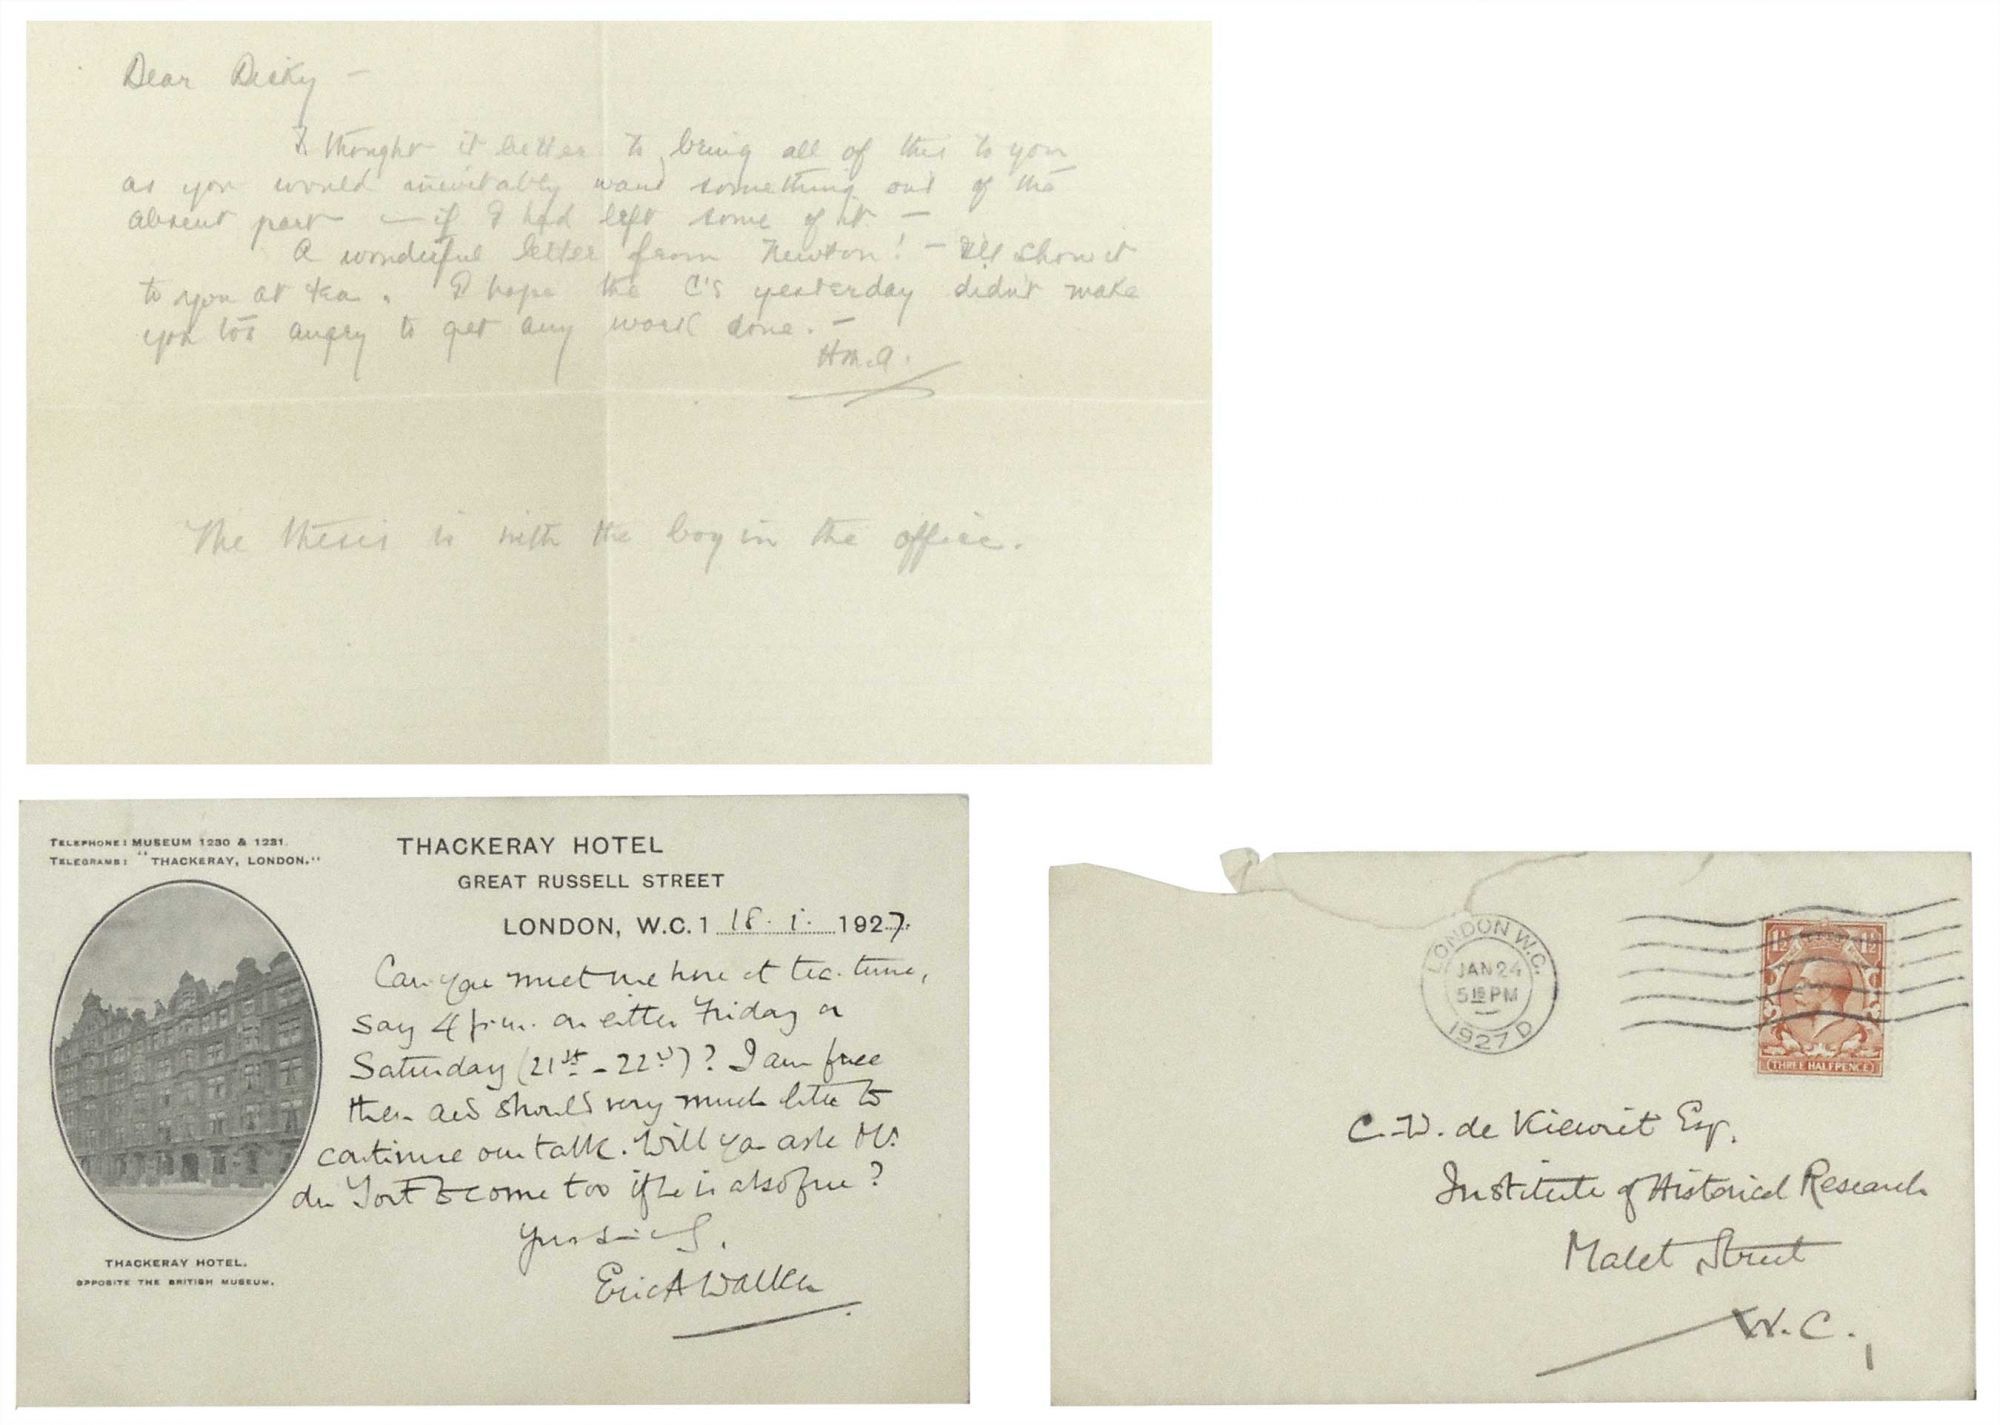 Dear Dicky —
I thought it better to bring all of this to you
as you would inevitably want something out of the
absent part — if I had left some of it —
A wonderful letter from Newton! — I'll show it
to you at tea. I hope the C's yesterday didn't make
you too angry to get any work done. —
H.M.A.
The thesis is with the boy in the office.
TELEPHONE: MUSEUM 1230 & 1231.
TELEGRAMS: "THACKERAY, LONDON."
THACKERAY HOTEL
GREAT RUSSELL STREET
LONDON, W.C.1 18.1.1927.
Can you meet me here at tea-time,
say 4 p.m. on either Friday or
Saturday (21st - 22d)? I am free
then and should very much like to
continue our talk. Will you ask Mr.
du Toit to come too if he is also free?
Yours sincerely,
Eric A Walker
THACKERAY HOTEL.
OPPOSITE THE BRITISH MUSEUM.
LONDON W.C.
JAN 24
5 15 PM
1927 D
1½ 1½
THREE HALFPENCE
C.W. de Kiewit Esq.
Institute of Historical Research
Malet Street
W.C.1